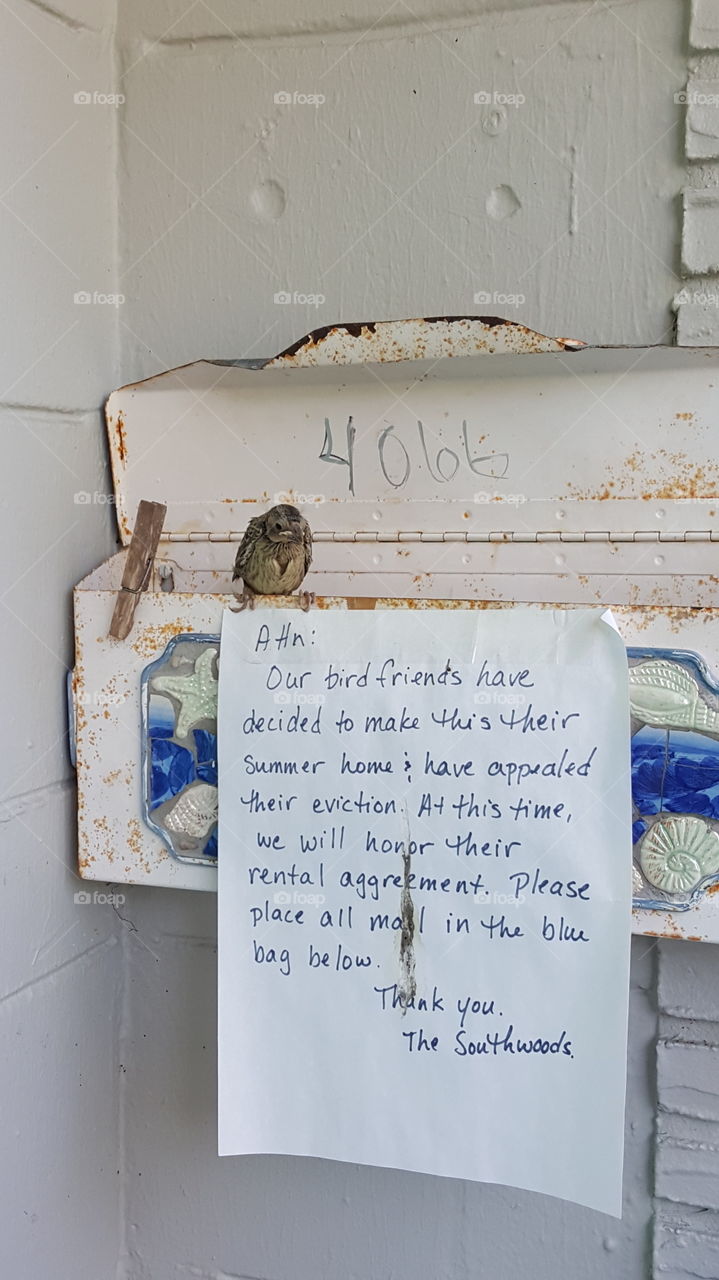 4066
Attn:
Our bird friends have
decided to make this their
summer home & have appealed
their eviction. At this time,
we will honor their
rental aggreement. Please
place all mail in the blue
bag below.
Thank you.
The Southwoods.